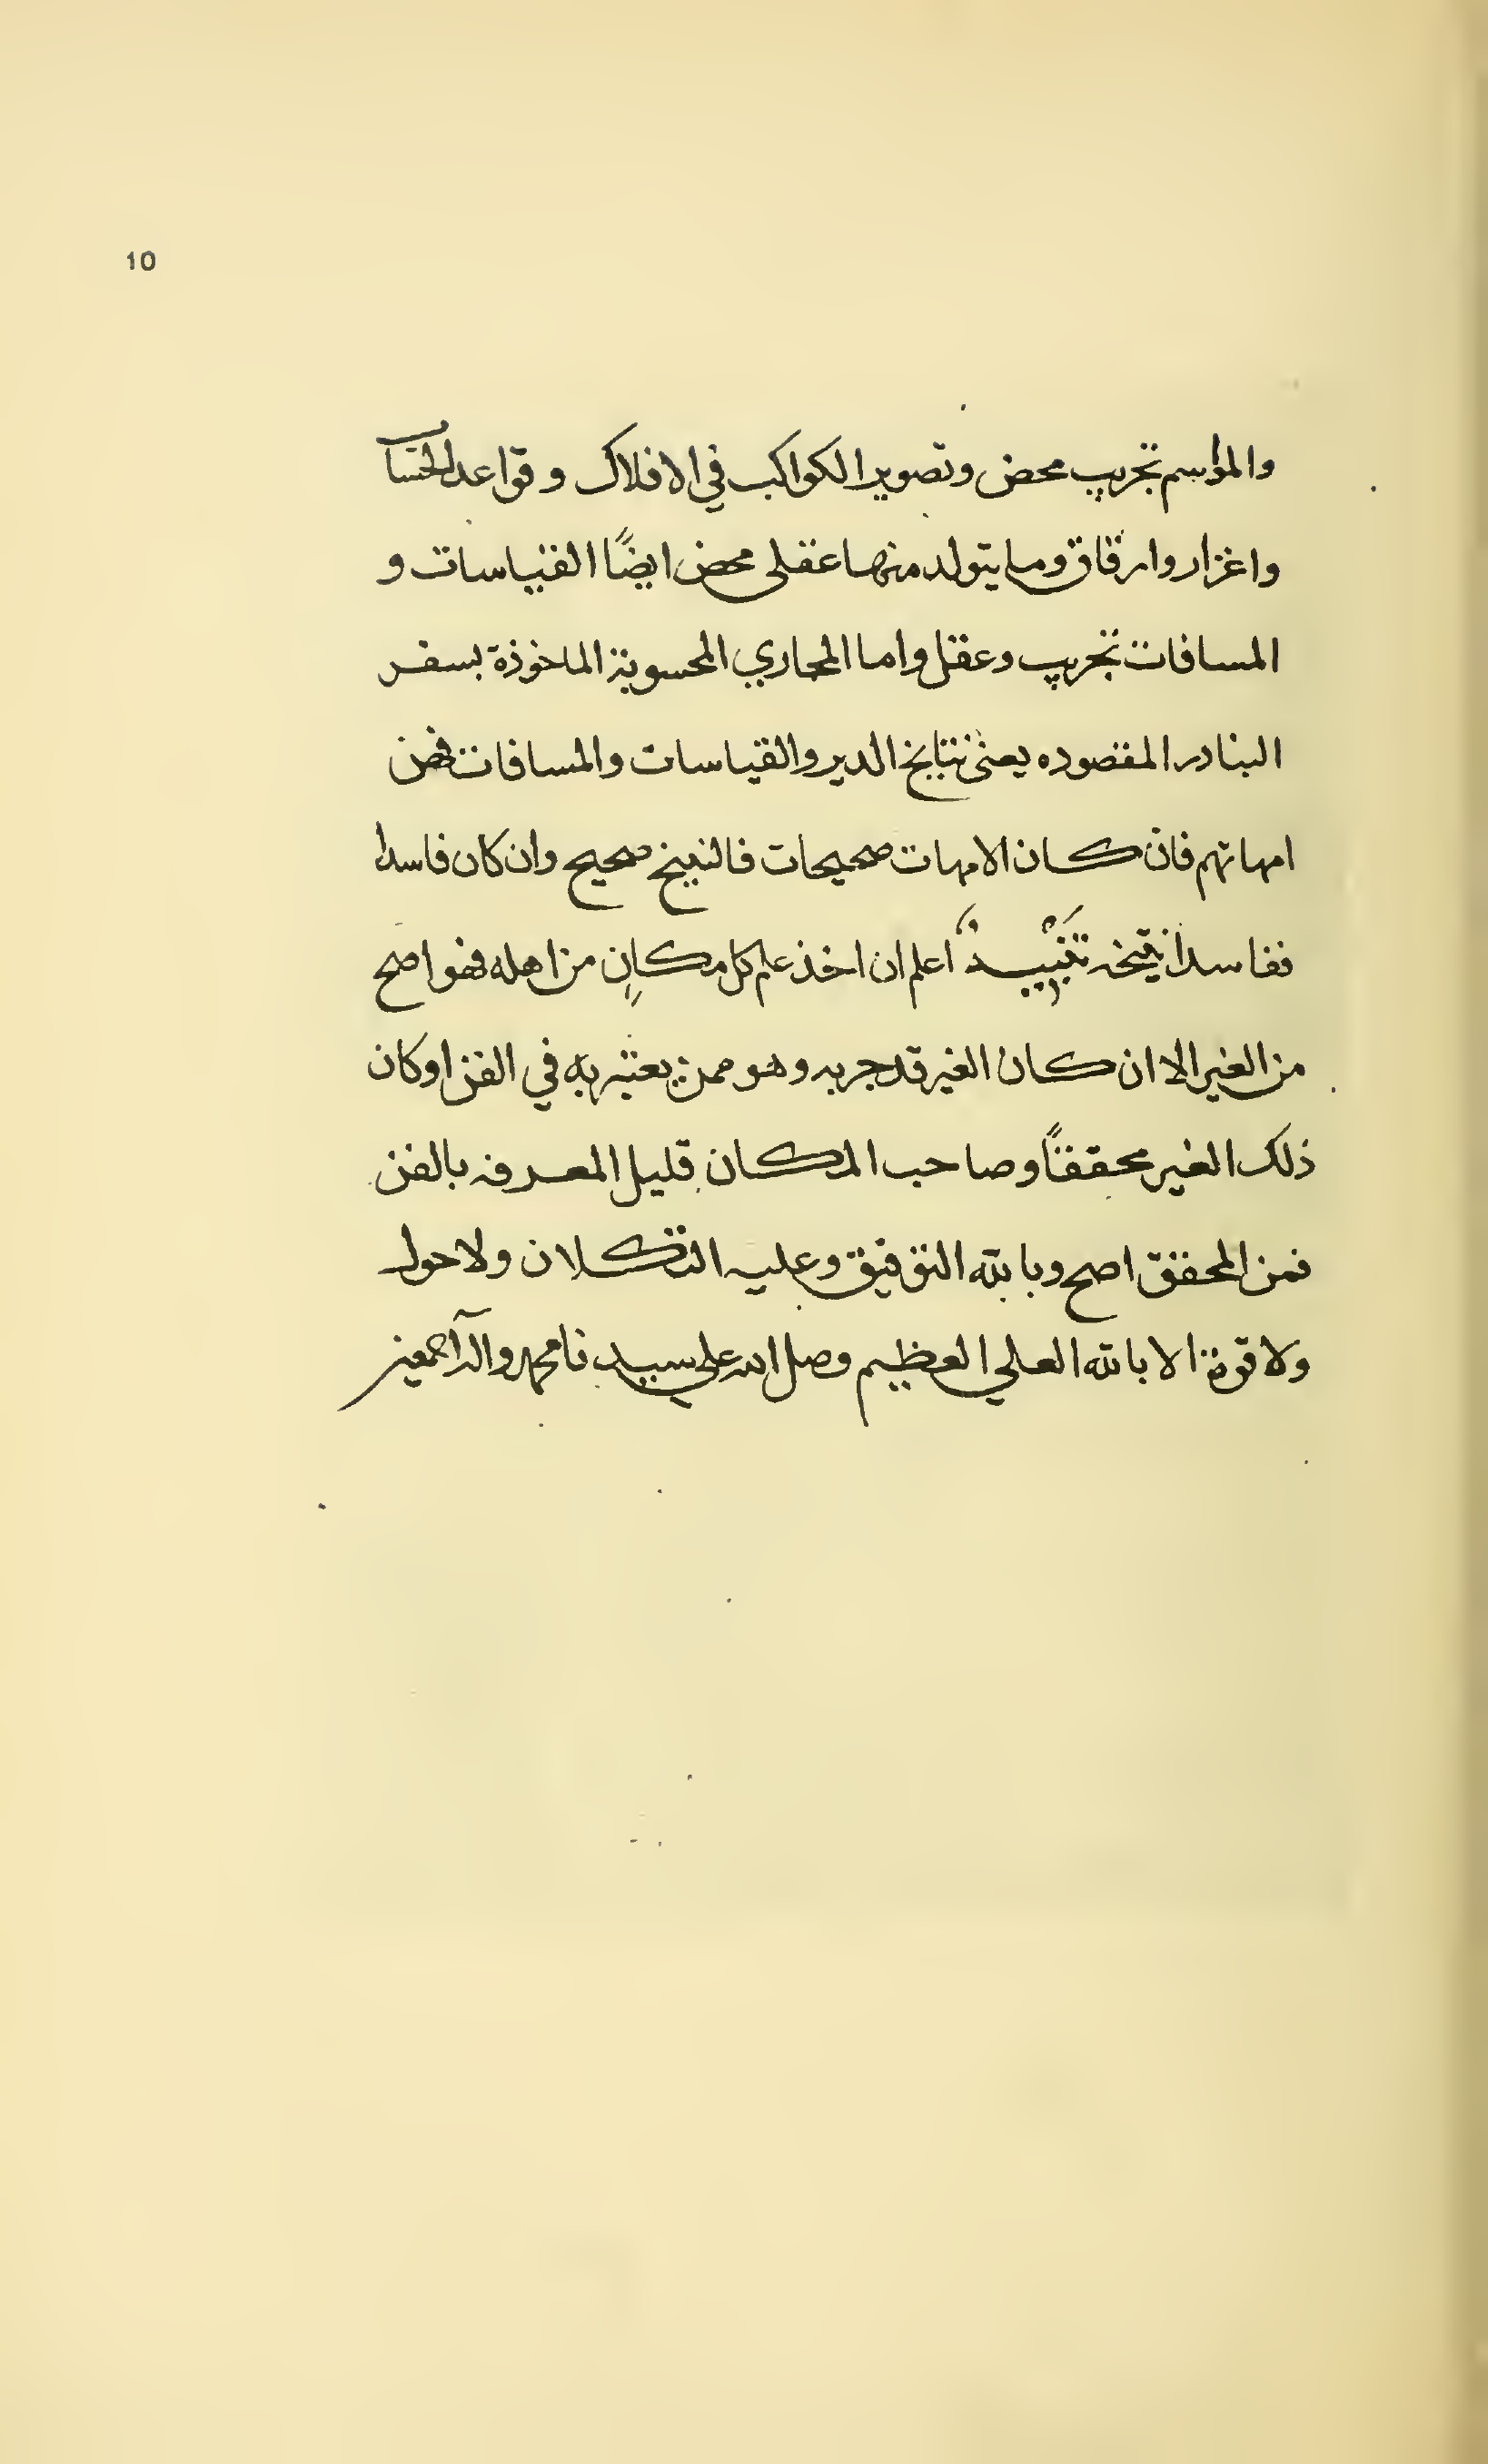 10
والمواسم تجريب محض وتصوير الكواكب في الافلاك وقواعد الحساب
واغزار وارقاق وما يتولد منها عقلي محض ايضًا القياسات و
المسافات تجريب وعقل واما المجاري المحسوبة الماخوذة بسفر
البنادر المقصوده يعني نتايج الدير والقياسات والمسافات فهن
امهاتهم فان كان الامهات صحيحات فالنتيج صحيح وان كان فاسدا
ففاسدا نتيجه تنبيه اعلم ان اخذ علم كل مكانٍ من اهله فهو اصح
من الغير الا ان كان الغير قد جربه وهو ممن يعتبر به في الفن اوكان
ذلك الغير محققًا وصاحب المكان قليل المعرفه بالفن
فمن المحقق اصح وبالله التوفيق وعليه التكلان ولاحول
ولا قوة الا بالله العلي العظيم وصل الله علي سيدنا محمد واله اجمعين